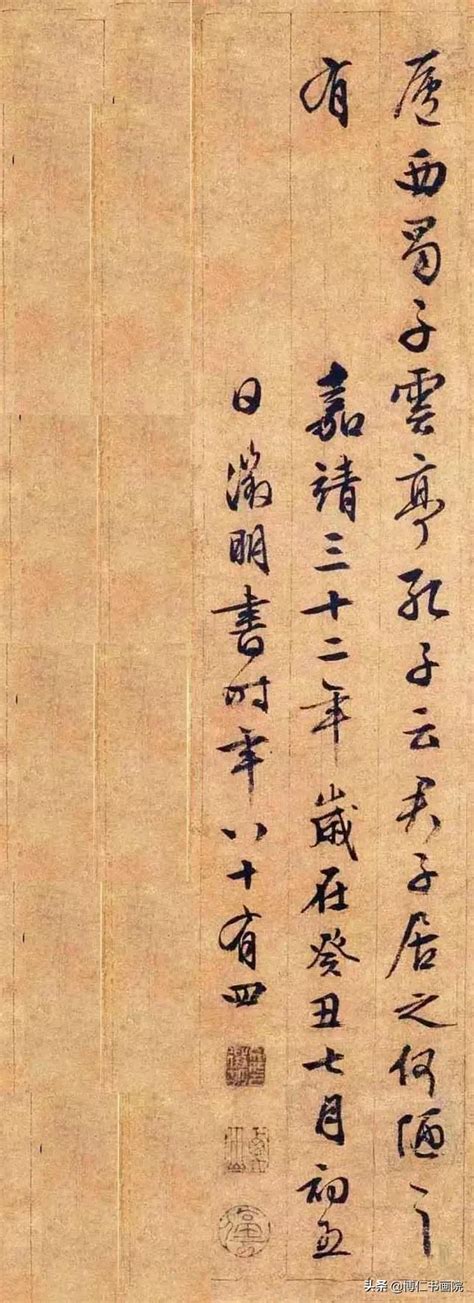 廬西蜀子雲亭孔子云君子居之何陋之
有
嘉靖三十二年歲在癸丑七月初五
日徵明書時年八十有四
头条 @博仁书画院